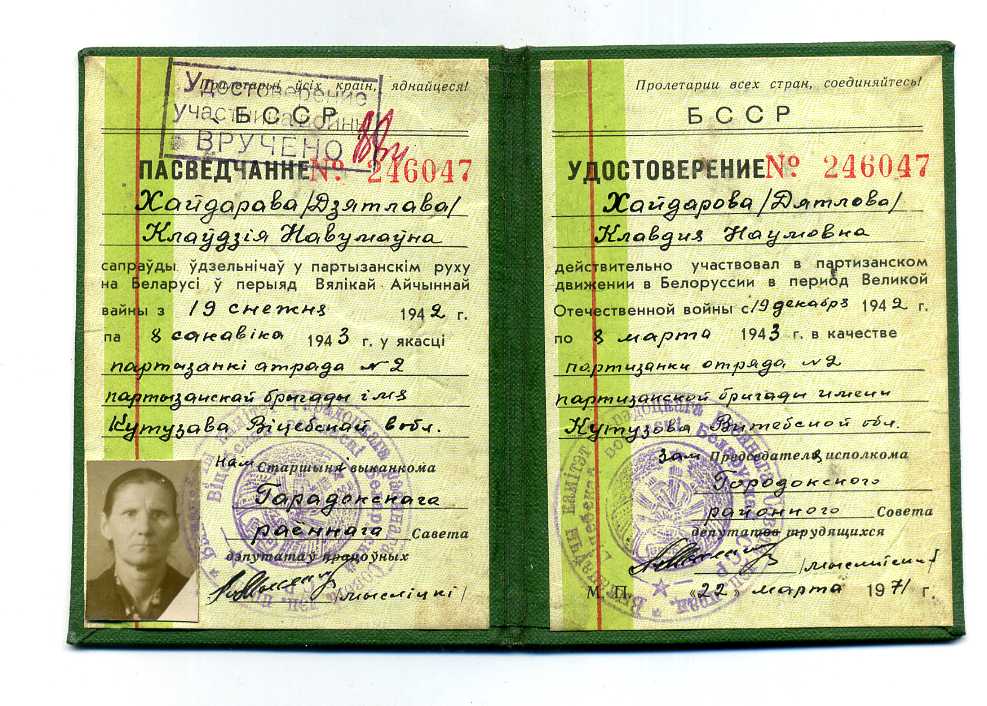 Пралетарыі ўсіх краін, яднайцеся!
Удостоверение
участника войны
ВРУЧЕНО
БССР
ПАСВЕДЧАННЕ № 246047
Хайдарава /Дзятлава/
Клаўдзія Навумаўна
сапраўды ўдзельнічаў у партызанскім руху
на Беларусі ў перыяд Вялікай Айчыннай
вайны з 19 снежня 1942 г.
па 8 сакавіка 1943 г. у якасці
партызанкі атрада №2
партызанскай брыгады імя
Кутузава Віцебскай вобл.
Нам Старшыні выканкома
Гарадокскага
раённага Савета
дэпутатаў працоўных
/мысліцкі/
Пролетарии всех стран, соединяйтесь!
БССР
УДОСТОВЕРЕНИЕ № 246047
Хайдарова /Дятлова/
Клавдия Наумовна
действительно участвовал в партизанском
движении в Белоруссии в период Великой
Отечественной войны с 19 декабря 1942 г.
по 8 марта 1943 г. в качестве
партизанки отряда №2
партизанской бригады имени
Кутузова Витебской обл.
Зам Председателя исполкома
Городокского
районного Совета
депутатов трудящихся
М. П. „22" марта 1971 г.